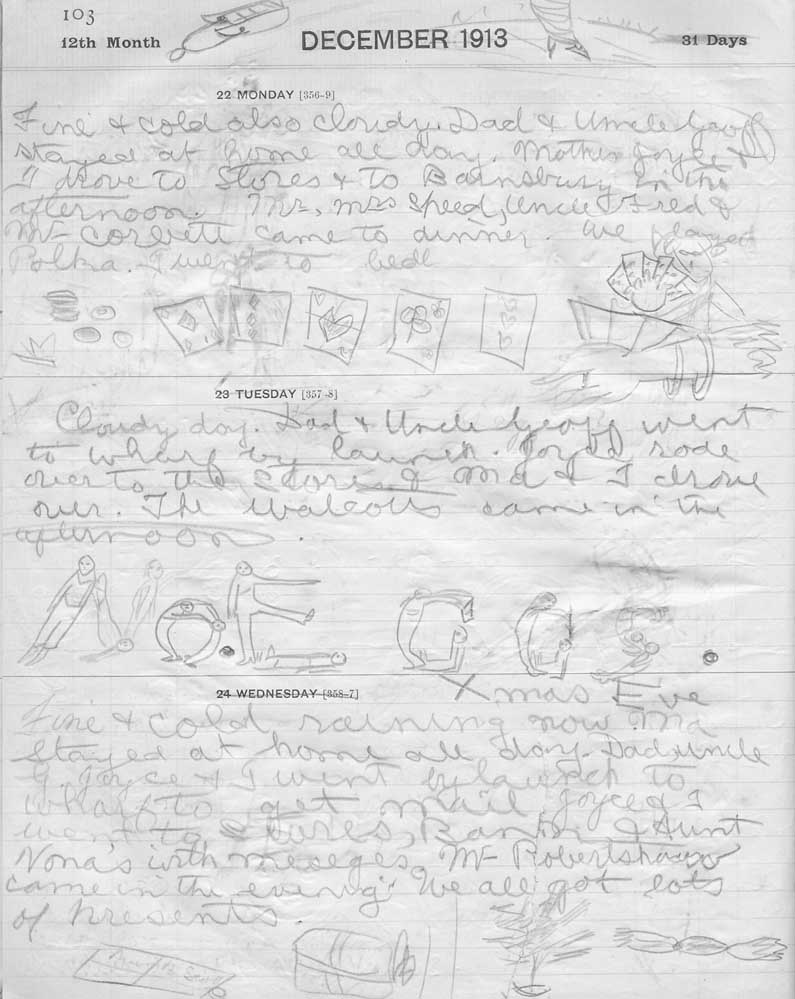 103
12th Month DECEMBER 1913 31 Days
22 MONDAY [356-9]
Fine & cold also cloudy. Dad & Uncle Geoff
stayed at home all day. Mother Joyce &
I drove to Stores & to Barnsbury in the
afternoon. Mr, Mrs Speed, Uncle Fred &
Mr Corbett came to dinner. We played
Polka. I went to bed
23 TUESDAY [357-8]
Cloudy day. Dad & Uncle Geoff went
to wharf by launch. Joyce rode
over to the Stores & Ma & I drove
over. The Walcotts came in the
afternoon.
24 WEDNESDAY [358-7] Xmas Eve
Fine & cold raining now Ma
stayed at home all day. Dad, uncle
G. Joyce & I went by launch to
wharf to get mail Joyce & I
went to Stores, & Aunt
Nona's with meseges. Mr Robertshaw
came in the evenig. We all got lots
of presents.